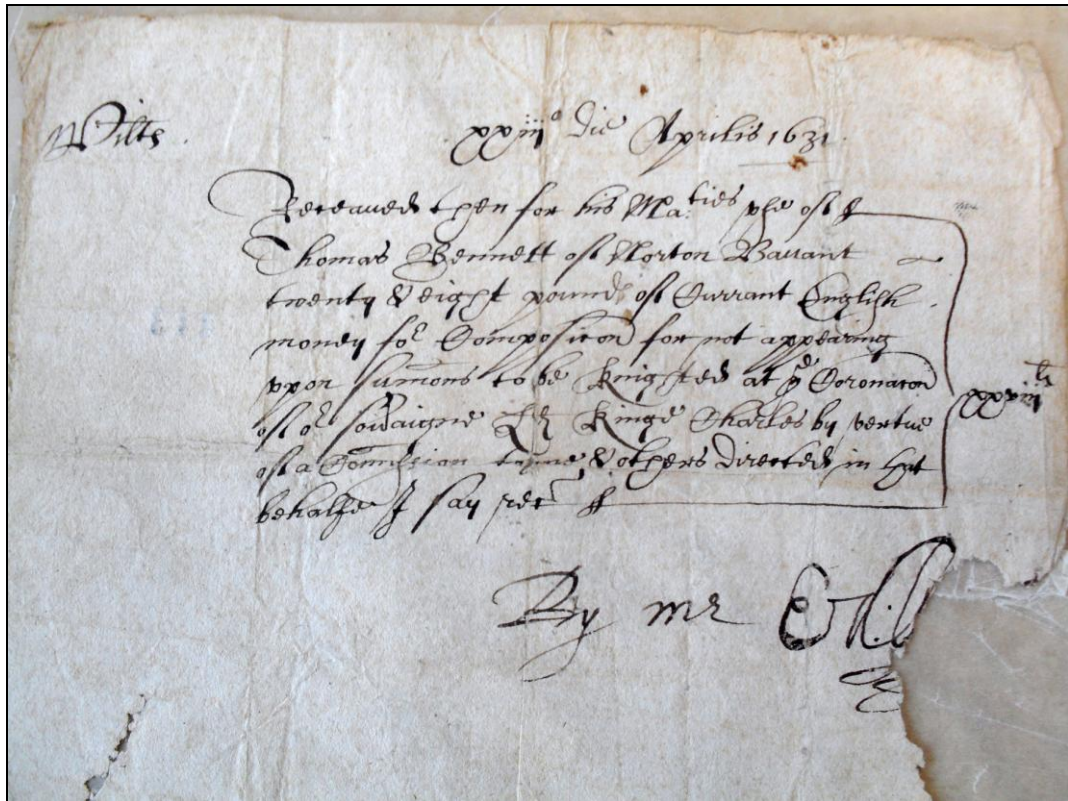 Wilts.
xxiiiº die Aprilis 1631.
Receaved then for his Ma:ties vse of
Thomas Bennett of Norton Bavant
twenty & eight pound of Currant English
money for Composicon for not appearing
vpon sumons to be Knighted at ye Coronacon
of or soveraigne Ld Kinge Charles by vertue
of a Comission to me & others directed in that
behalfe I say rec
xxviijli
By me